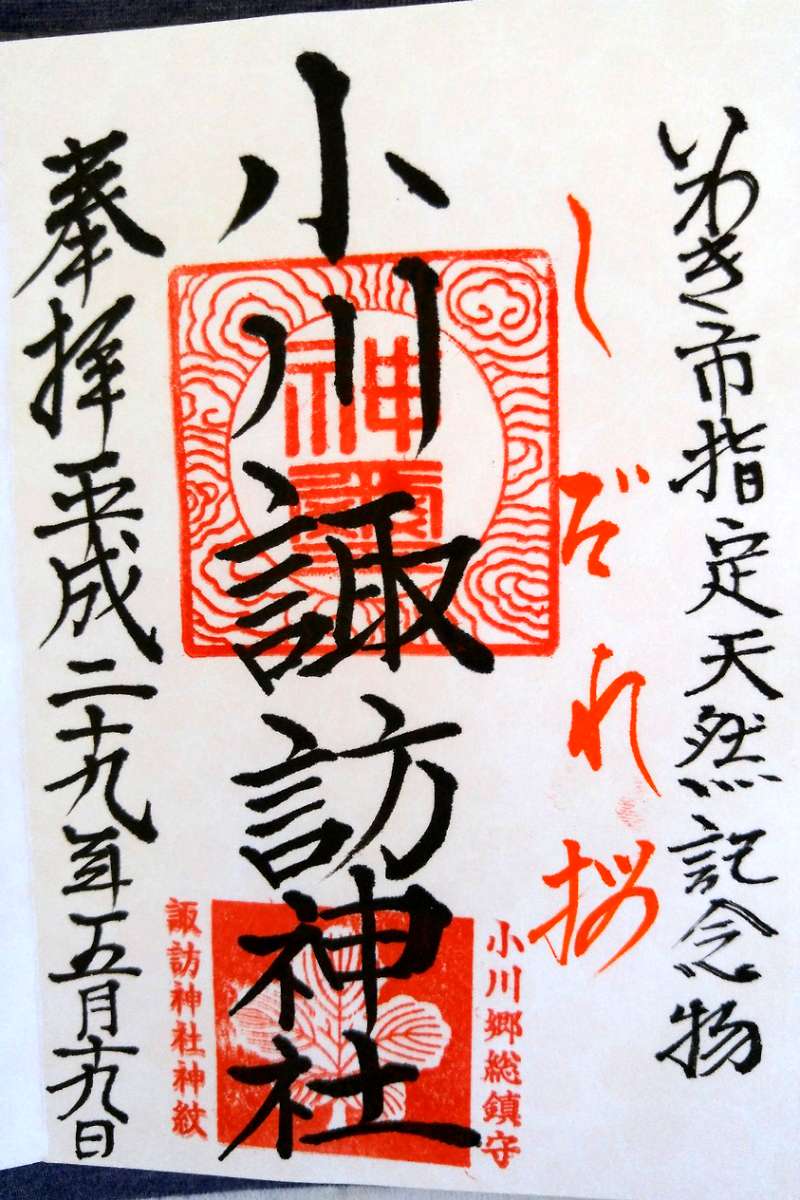 いわき市指定天然記念物
しだれ桜
小川郷総鎮守
小川諏訪神社
諏訪神社神紋
奉拝平成二十九年五月十九日